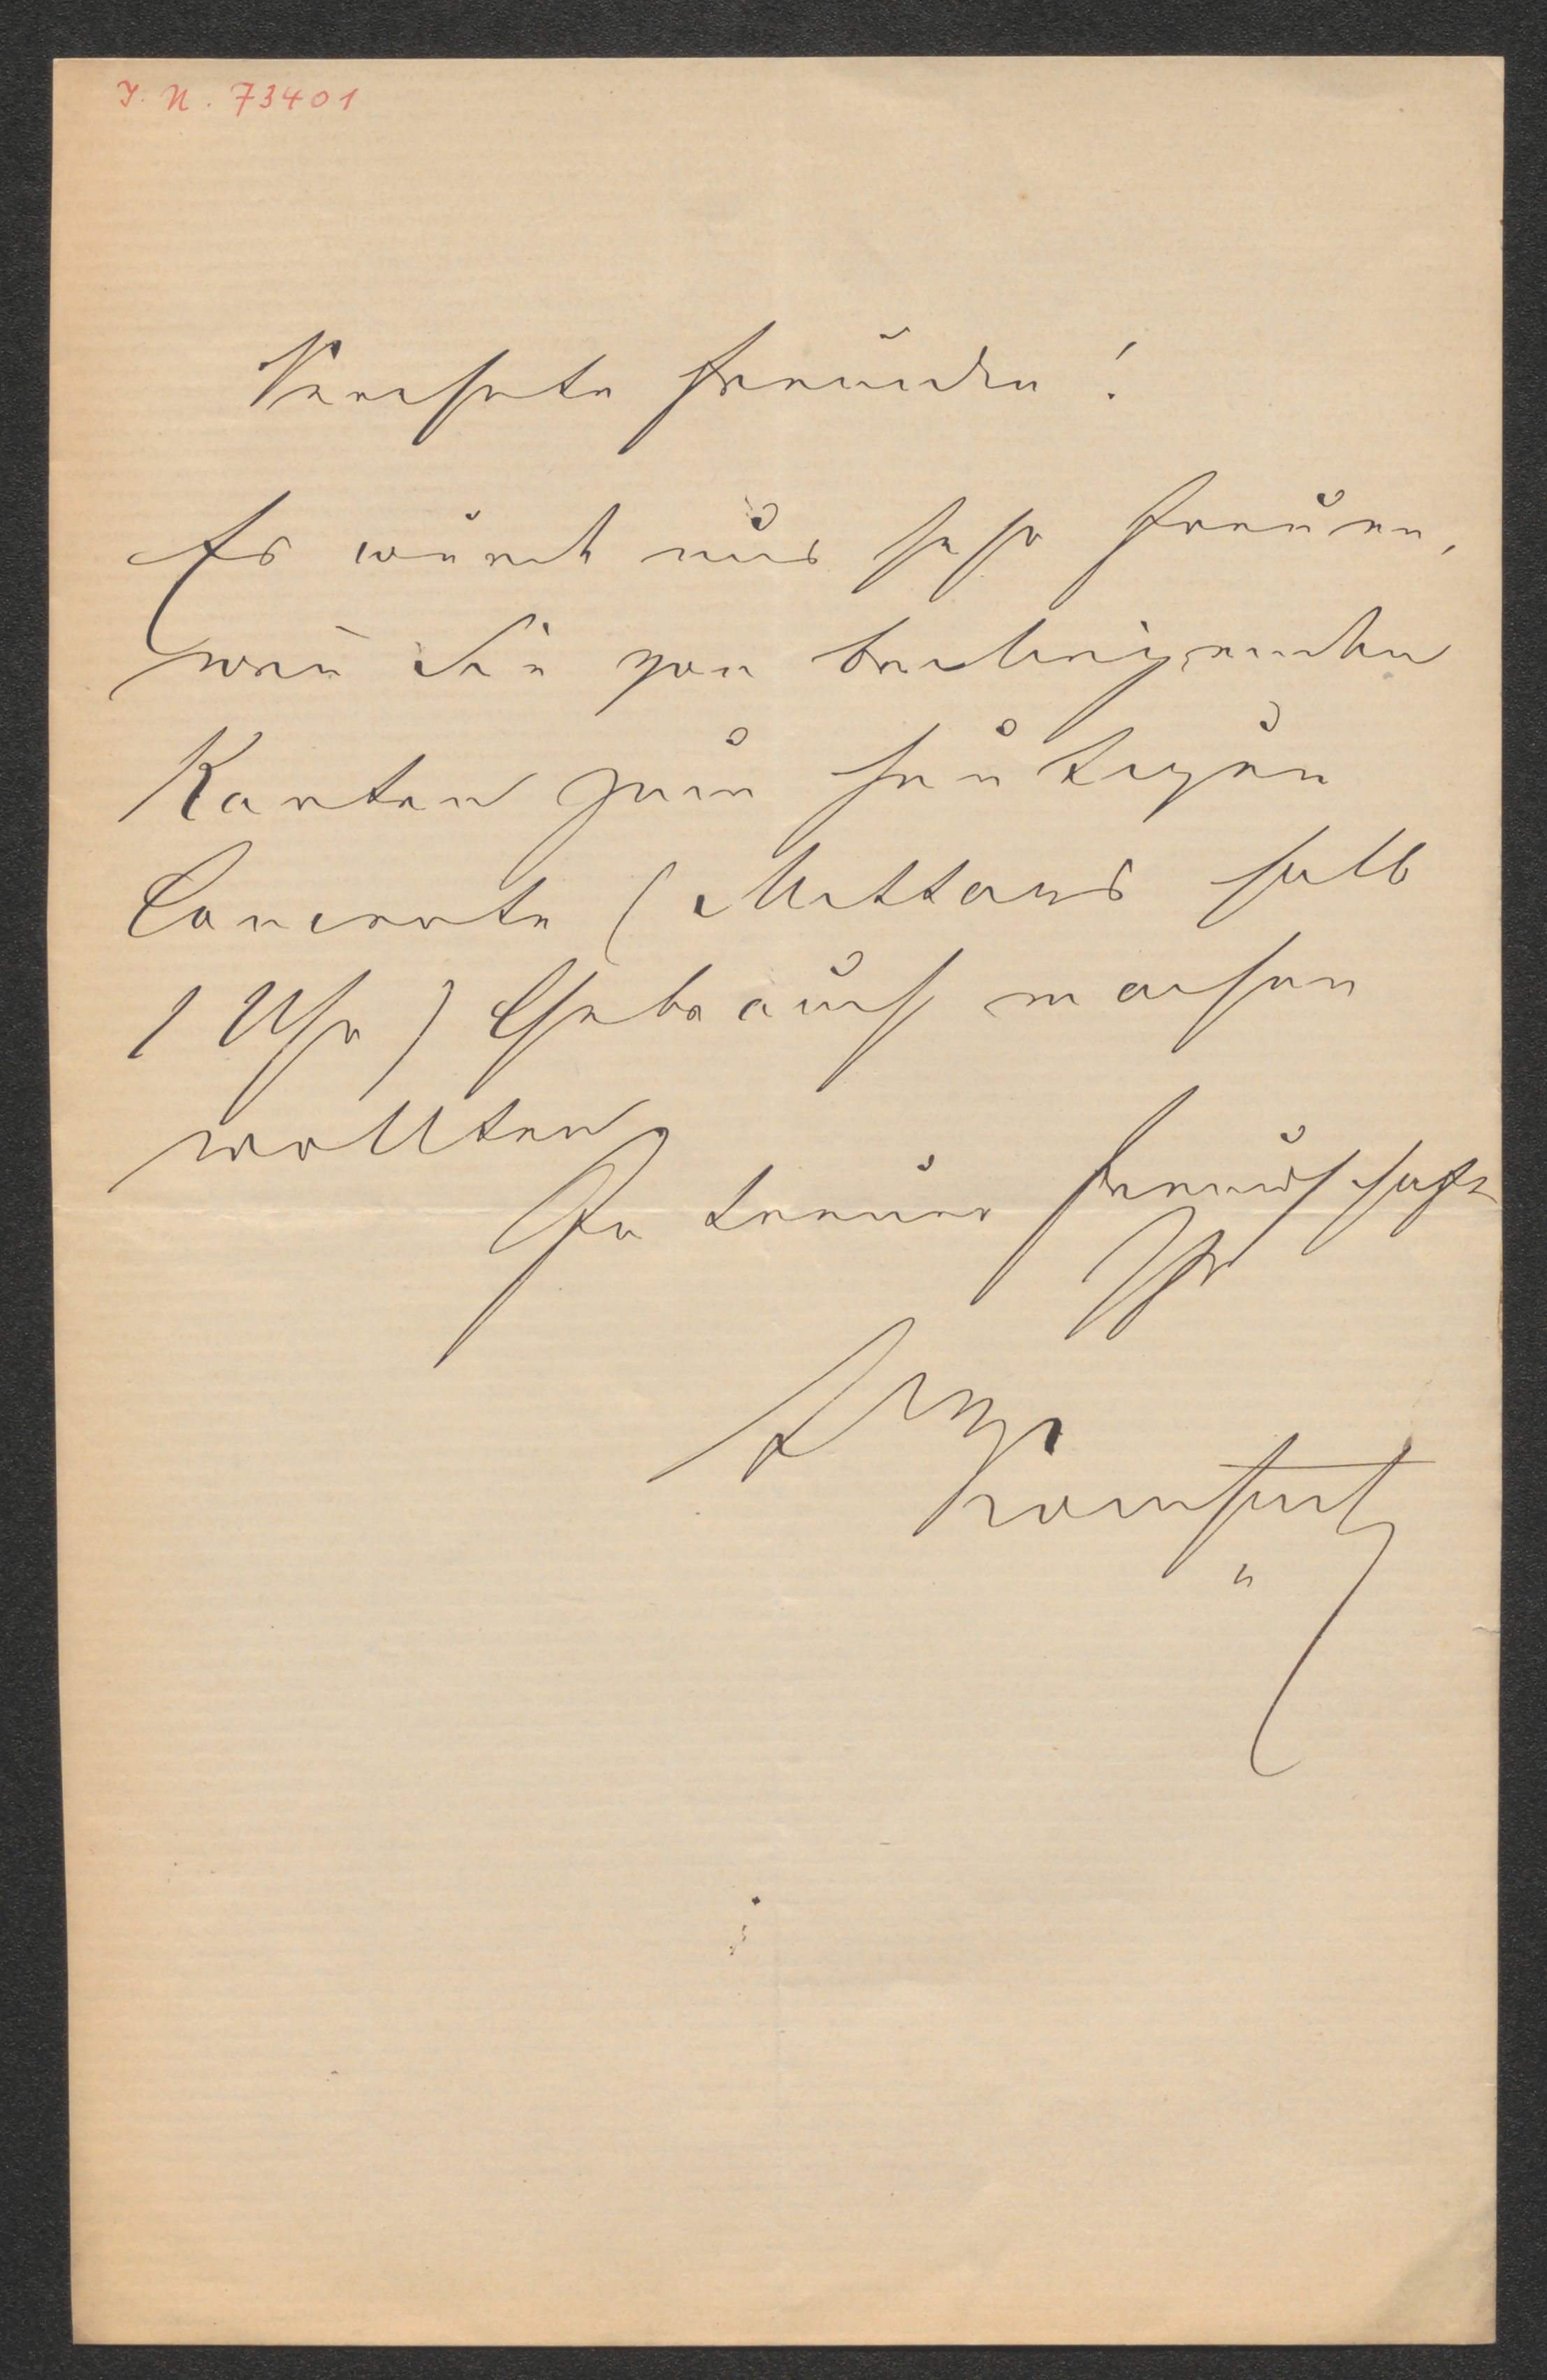 I. N. 73401
Verehrte Freundin!
Es würde uns sehr freuen,
wen̄ Sie von beiliegenden
Karten zum heutigen
Concerte (Mittags halb
1 Uhr) Gebrauch machen
wollten.
In treuer Freundschaft
Ihr